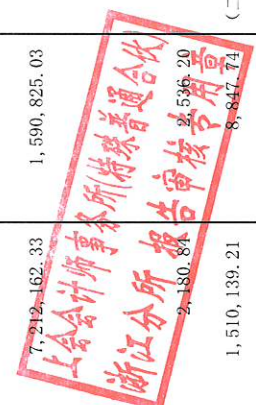 (二
1,590,825.03
2,536.20
8,847.74
7,212,162.33
2,180.84
1,510,139.21
上会会计师事务所(特殊普通合伙)
浙江分所 报告审核专用章